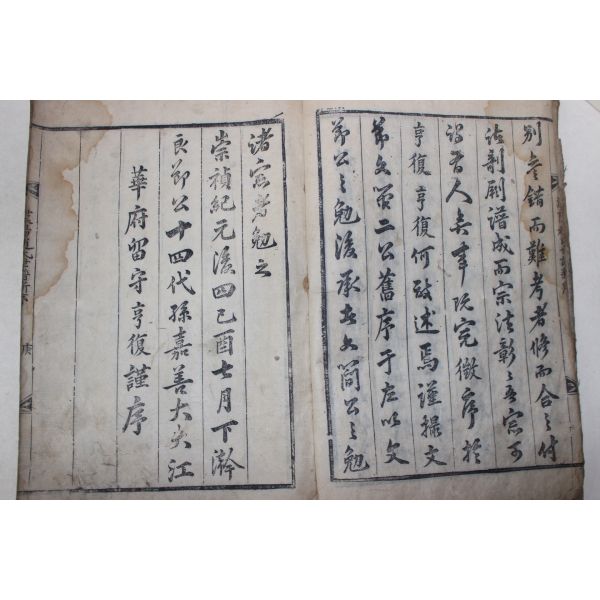 別墨錯而難考者修而合之付
諸剞劂譜成而宗法彰之吾宗可
謂有人矣事旣完徵序於
亨復亨復何敢述焉謹撮文
節文簡二公舊序于左以文
節公之勉後承本文簡公之勉
諸宗者勉之
崇禎紀元後四己酉七月下澣
良節公十四代孫嘉善大夫江
華府留守亨復謹序